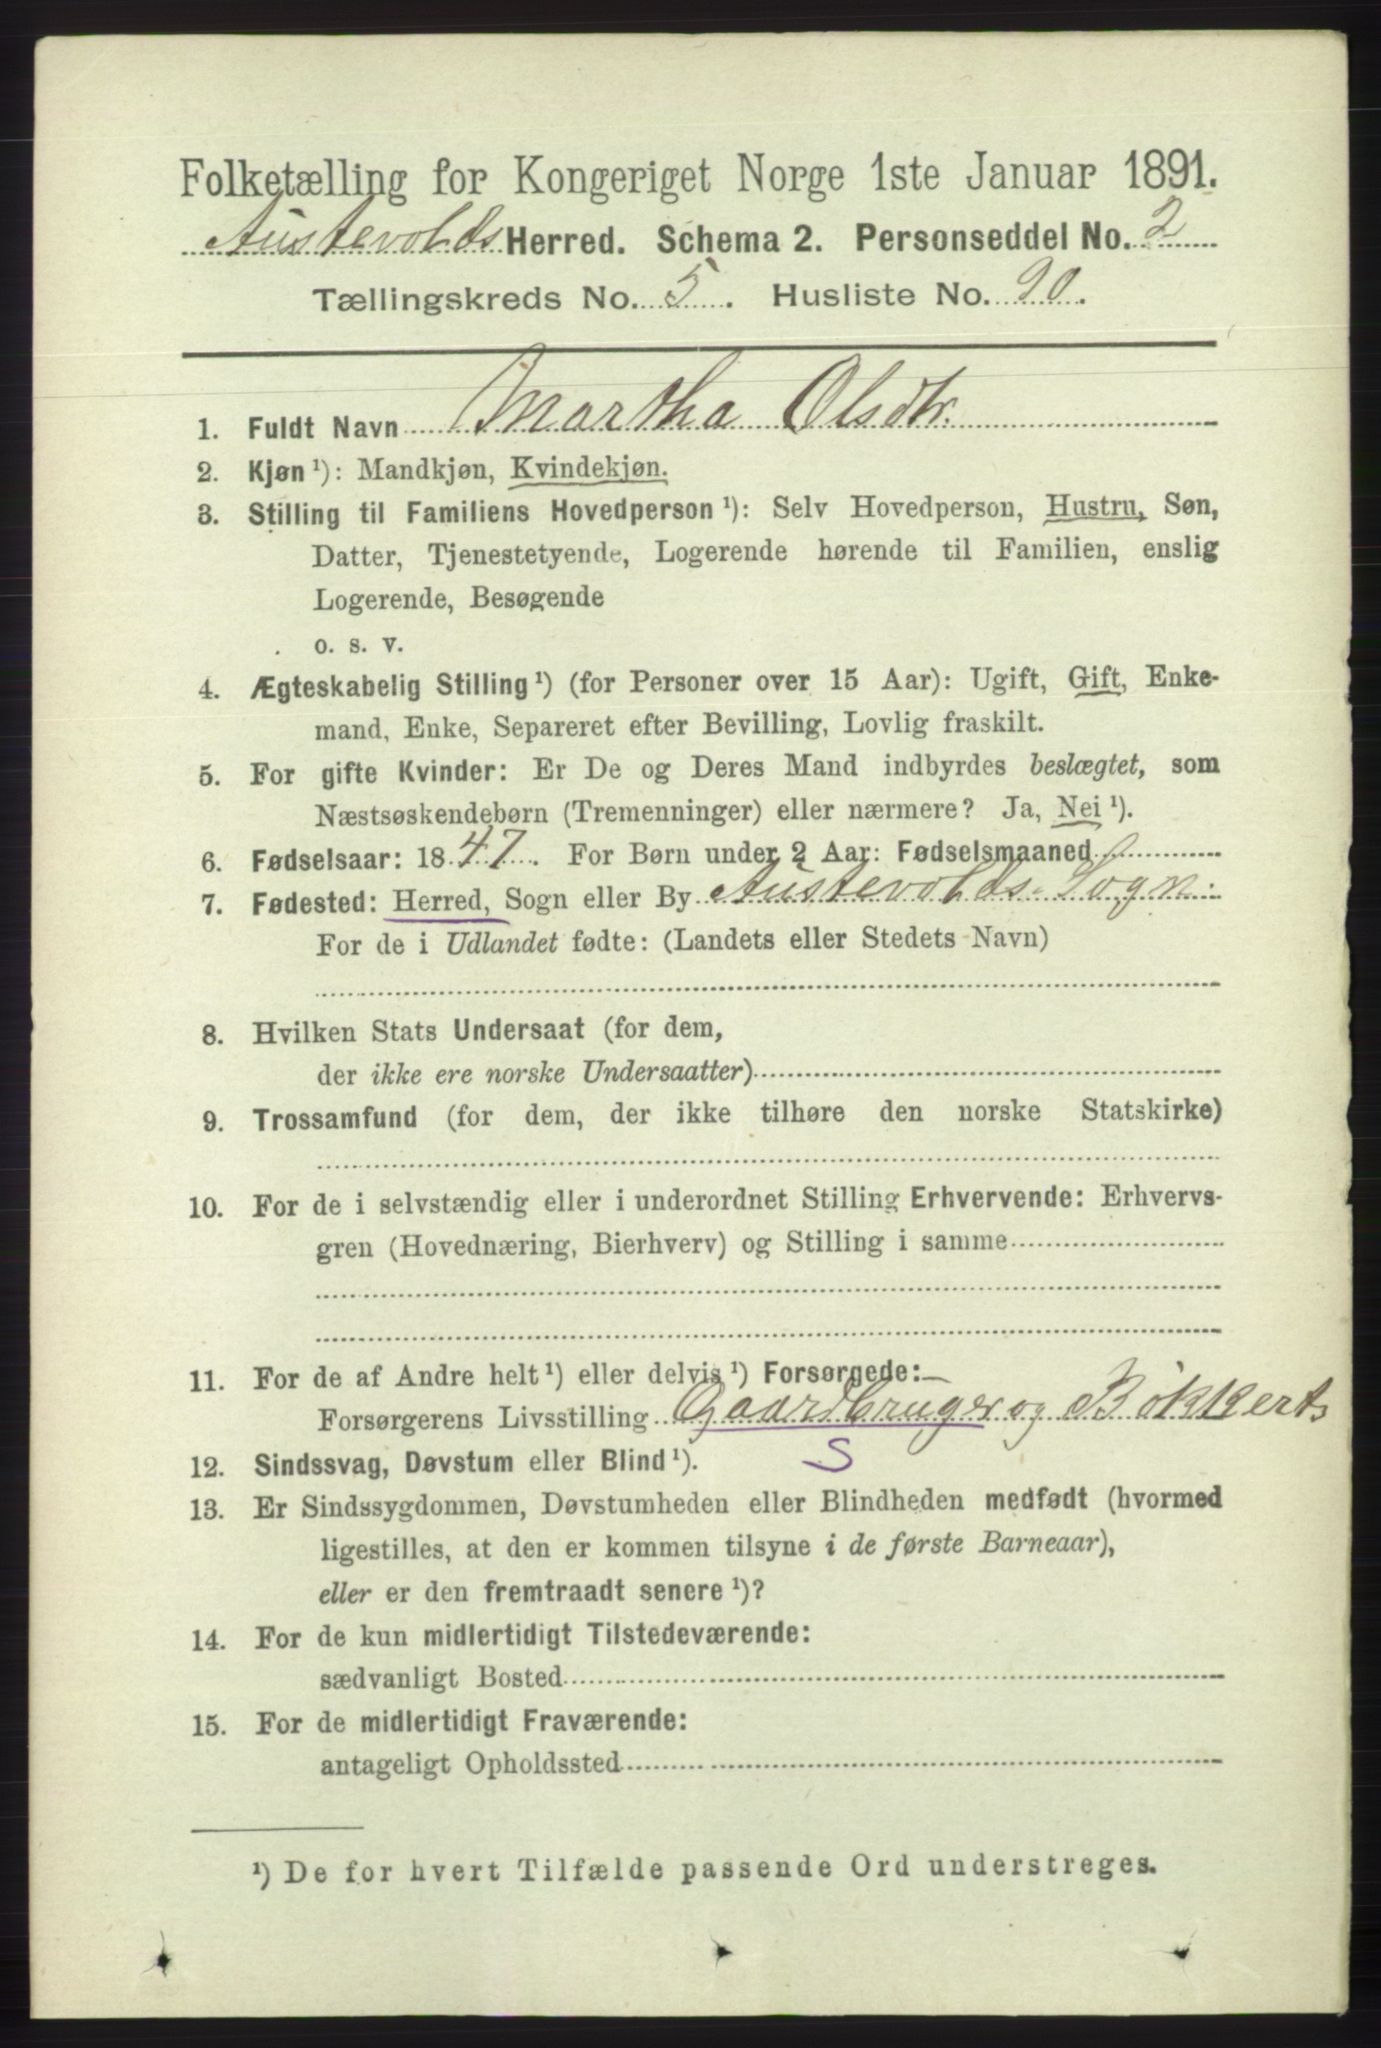 Folketælling for Kongeriget Norge 1ste Januar 1891.
Austevolds Herred. Schema 2. Personseddel No. 2
Tællingskreds No. 5. Husliste No. 90.
1. Fuldt Navn Martha Olsdtr.
2. Kjøn ¹): Mandkjøn, Kvindekjøn.
3. Stilling til Familiens Hovedperson ¹): Selv Hovedperson, Hustru, Søn,
Datter, Tjenestetyende, Logerende hørende til Familien, enslig
Logerende, Besøgende
o. s. v.
4. Ægteskabelig Stilling ¹) (for Personer over 15 Aar): Ugift, Gift, Enke-
mand, Enke, Separeret efter Bevilling, Lovlig fraskilt.
5. For gifte Kvinder: Er De og Deres Mand indbyrdes beslægtet, som
Næstsøskendebørn (Tremenninger) eller nærmere? Ja, Nei ¹).
6. Fødselsaar: 1847. For Børn under 2 Aar: Fødselsmaaned
7. Fødested: Herred, Sogn eller By Austevolds Sogn.
For de i Udlandet fødte: (Landets eller Stedets Navn)
8. Hvilken Stats Undersaat (for dem,
der ikke ere norske Undersaatter)
9. Trossamfund (for dem, der ikke tilhøre den norske Statskirke)
10. For de i selvstændig eller i underordnet Stilling Erhvervende: Erhvervs-
gren (Hovednæring, Bierhverv) og Stilling i samme
11. For de af Andre helt ¹) eller delvis ¹) Forsørgede:
Forsørgerens Livsstilling Gaardbruger og Bøkkerts
12. Sindssvag, Døvstum eller Blind ¹). S
13. Er Sindssygdommen, Døvstumheden eller Blindheden medfødt (hvormed
ligestilles, at den er kommen tilsyne i de første Barneaar),
eller er den fremtraadt senere ¹)?
14. For de kun midlertidigt Tilstedeværende:
sædvanligt Bosted
15. For de midlertidigt Fraværende:
antageligt Opholdssted
¹) De for hvert Tilfælde passende Ord understreges.